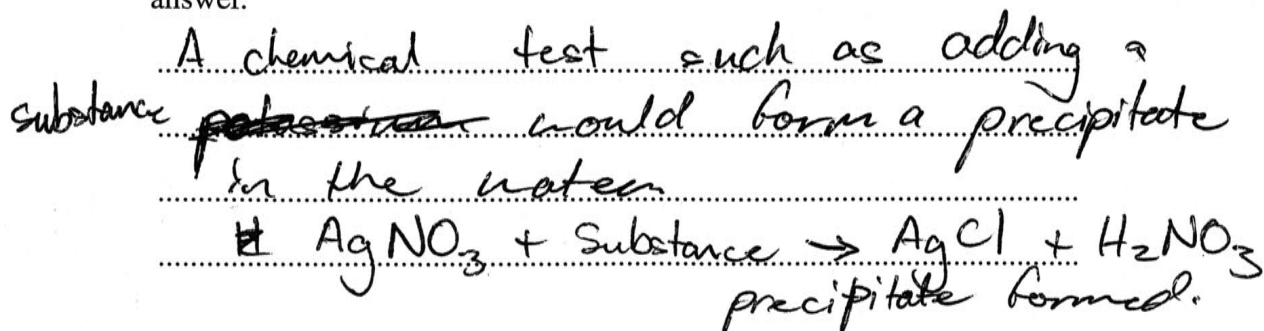 answer.
A chemical test such as adding a
substance would form a precipitate
in the water
AgNO₃ + Substance → AgCl + H₂NO₃
precipitate formed.